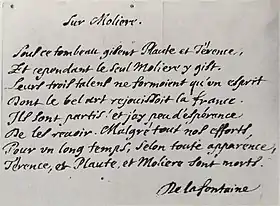 Sur Moliere.
Soubs ce tombeau gisent Plaute et Térence,
Et cependant le seul Moliere y gist.
Leurs trois talens ne formoient qu'un esprit
Dont le bel art rejouissoit la france.
Ils sont partis! et j'ay peu d'esperance
De les revoir. Malgré tout nos efforts,
Pour un long temps, selon toute apparence,
Térence, et Plaute, et Moliere sont morts.
De la fontaine